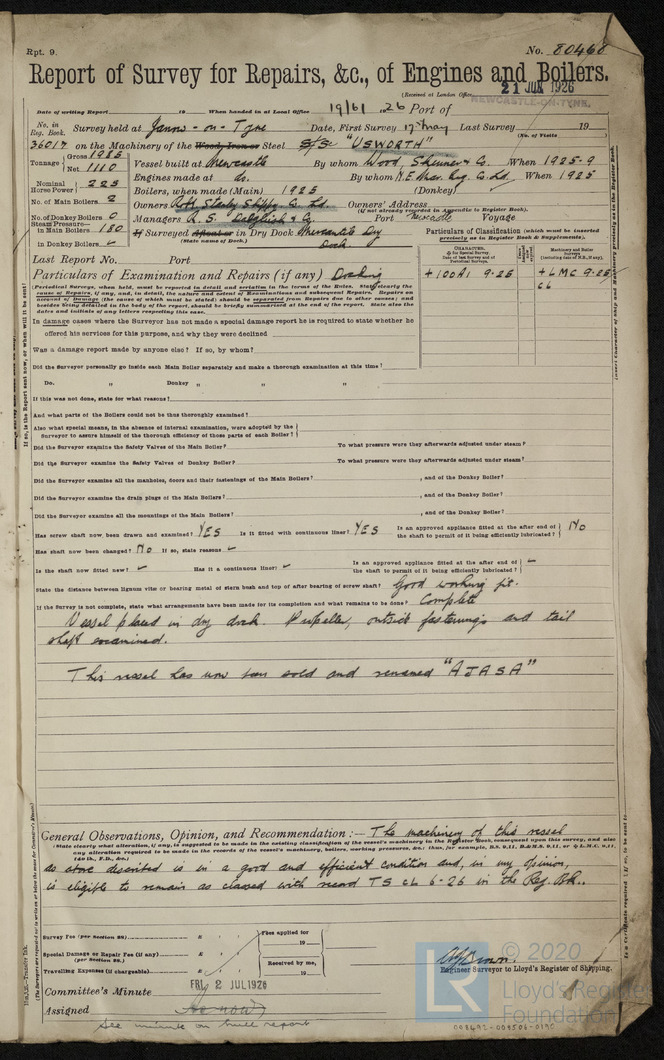 Rpt. 9.
No. 80468
Report of Survey for Repairs, &c., of Engines and Boilers.
(Received at London Office 21 JUN 1926
Date of writing Report 19 When handed in at Local Office 19/6/ 1926 Port of NEWCASTLE-ON-TYNE.
No. in Reg. Book. Survey held at Jarrow-on-Tyne Date, First Survey 17 May Last Survey 19
(No. of Visits
36017 on the Machinery of the Wood, Iron or Steel S/S "USWORTH"
Tonnage Gross 1985 Net 1110
Vessel built at Newcastle By whom Wood, Skinner & Co. When 1925-9
Engines made at do. By whom N.E. Mar. Eng. Co. Ld. When 1925
Nominal Horse Power 225
Boilers, when made (Main) 1925 (Donkey)
No. of Main Boilers 2
Owners R.H. Stanley Shipg. Co. Ltd. Owners' Address
(if not already recorded in Appendix to Register Book).
No. of Donkey Boilers 0
Managers R. S. Dalgliesh & Co Port Newcastle Voyage
Steam Pressure in Main Boilers 180
If Surveyed Afloat or in Dry Dock Mercantile Dry Dock
(State name of Dock.)
in Donkey Boilers
Particulars of Classification (which must be inserted precisely as in Register Book & Supplements).
Last Report No. Port
+100A1 9-25
+LMC 9-25
CL
Particulars of Examination and Repairs (if any) Docking
(Periodical Surveys, when held, must be reported in detail and seriatim in the terms of the Rules. State clearly the
cause of Repairs, if any, and, in detail, the nature and extent of Examinations and subsequent Repairs. Repairs on
account of Damage (the cause of which must be stated) should be separated from Repairs due to other causes; and
besides being detailed in the body of the report, should be briefly summarised at the end of the report. State also the
dates and initials of any letters respecting this case.
In damage cases where the Surveyor has not made a special damage report he is required to state whether he
offered his services for this purpose, and why they were declined
Was a damage report made by anyone else? If so, by whom?
Did the Surveyor personally go inside each Main Boiler separately and make a thorough examination at this time?
Do. " Donkey " " "
If this was not done, state for what reasons?
And what parts of the Boilers could not be thus thoroughly examined?
Also what special means, in the absence of internal examination, were adopted by the
Surveyor to assure himself of the thorough efficiency of those parts of each Boiler?
Did the Surveyor examine the Safety Valves of the Main Boiler? To what pressure were they afterwards adjusted under steam?
Did the Surveyor examine the Safety Valves of Donkey Boiler? To what pressure were they afterwards adjusted under steam?
Did the Surveyor examine all the manholes, doors and their fastenings of the Main Boilers? , and of the Donkey Boiler?
Did the Surveyor examine the drain plugs of the Main Boilers? , and of the Donkey Boiler?
Did the Surveyor examine all the mountings of the Main Boilers? , and of the Donkey Boiler?
Has screw shaft now been drawn and examined? YES Is it fitted with continuous liner? YES Is an approved appliance fitted at the after end of the shaft to permit of it being efficiently lubricated? No
Has shaft now been changed? No If so, state reasons
Is the shaft now fitted new? Has it a continuous liner? Is an approved appliance fitted at the after end of the shaft to permit of it being efficiently lubricated?
State the distance between lignum vitæ or bearing metal of stern bush and top of after bearing of screw shaft? Good working fit.
If the Survey is not complete, state what arrangements have been made for its completion and what remains to be done? Complete
Vessel placed in dry dock. Propeller, outside fastenings and tail
shaft examined.
This vessel has now been sold and renamed "AJASA"
General Observations, Opinion, and Recommendation :— The machinery of this vessel
(State clearly what alteration, if any, is suggested to be made in the existing classification of the vessel's machinery in the Register Book, consequent upon this survey, and also
any alteration required to be made in the records of the vessel's machinery, boilers, working pressure, &c.: thus, for example, B.S. 9.11, B.&M.S. 9.11, or LMC 9.11,
140 lb., F.D., &c.)
as above described is in a good and efficient condition and, in my opinion,
is eligible to remain as classed with record TS CL 6-26 in the Reg. Bk..
Survey Fee (per Section 29) £ Fees applied for 19
Special Damage or Repair Fee (if any) (per Section 28.) £
Travelling Expenses (if chargeable) £ Received by me, 19
Engineer Surveyor to Lloyd's Register of Shipping.
Committee's Minute FRI. 2 JUL 1926
Assigned As now
See minute on hull report
LR © 2020
Lloyd's Register
Foundation